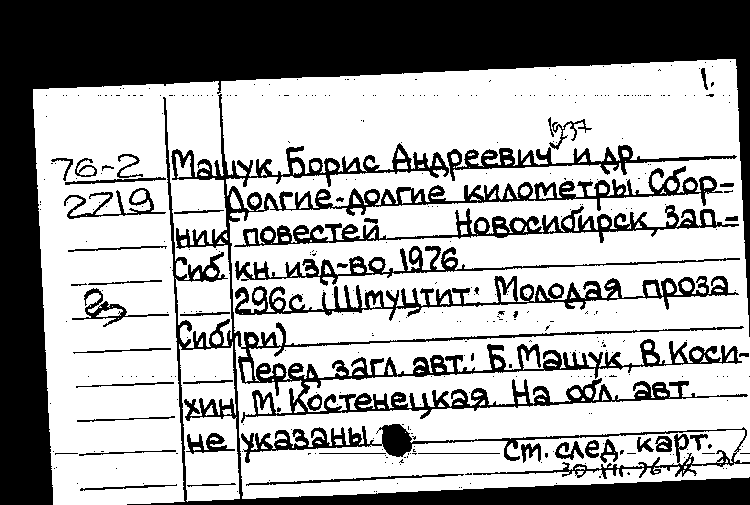 1.
1937
76-2 Машук, Борис Андреевич и др.
2719 Долгие-долгие километры. Сбор-
ник повестей. Новосибирск, Зап.-
Сиб. кн. изд-во, 1976.
296с. (Штуцтит: Молодая проза
Сибири)
Перед загл. авт.: Б. Машук, В. Коси-
хин, М. Костенецкая. На обл. авт.
не указаны.
Ст. след. карт.